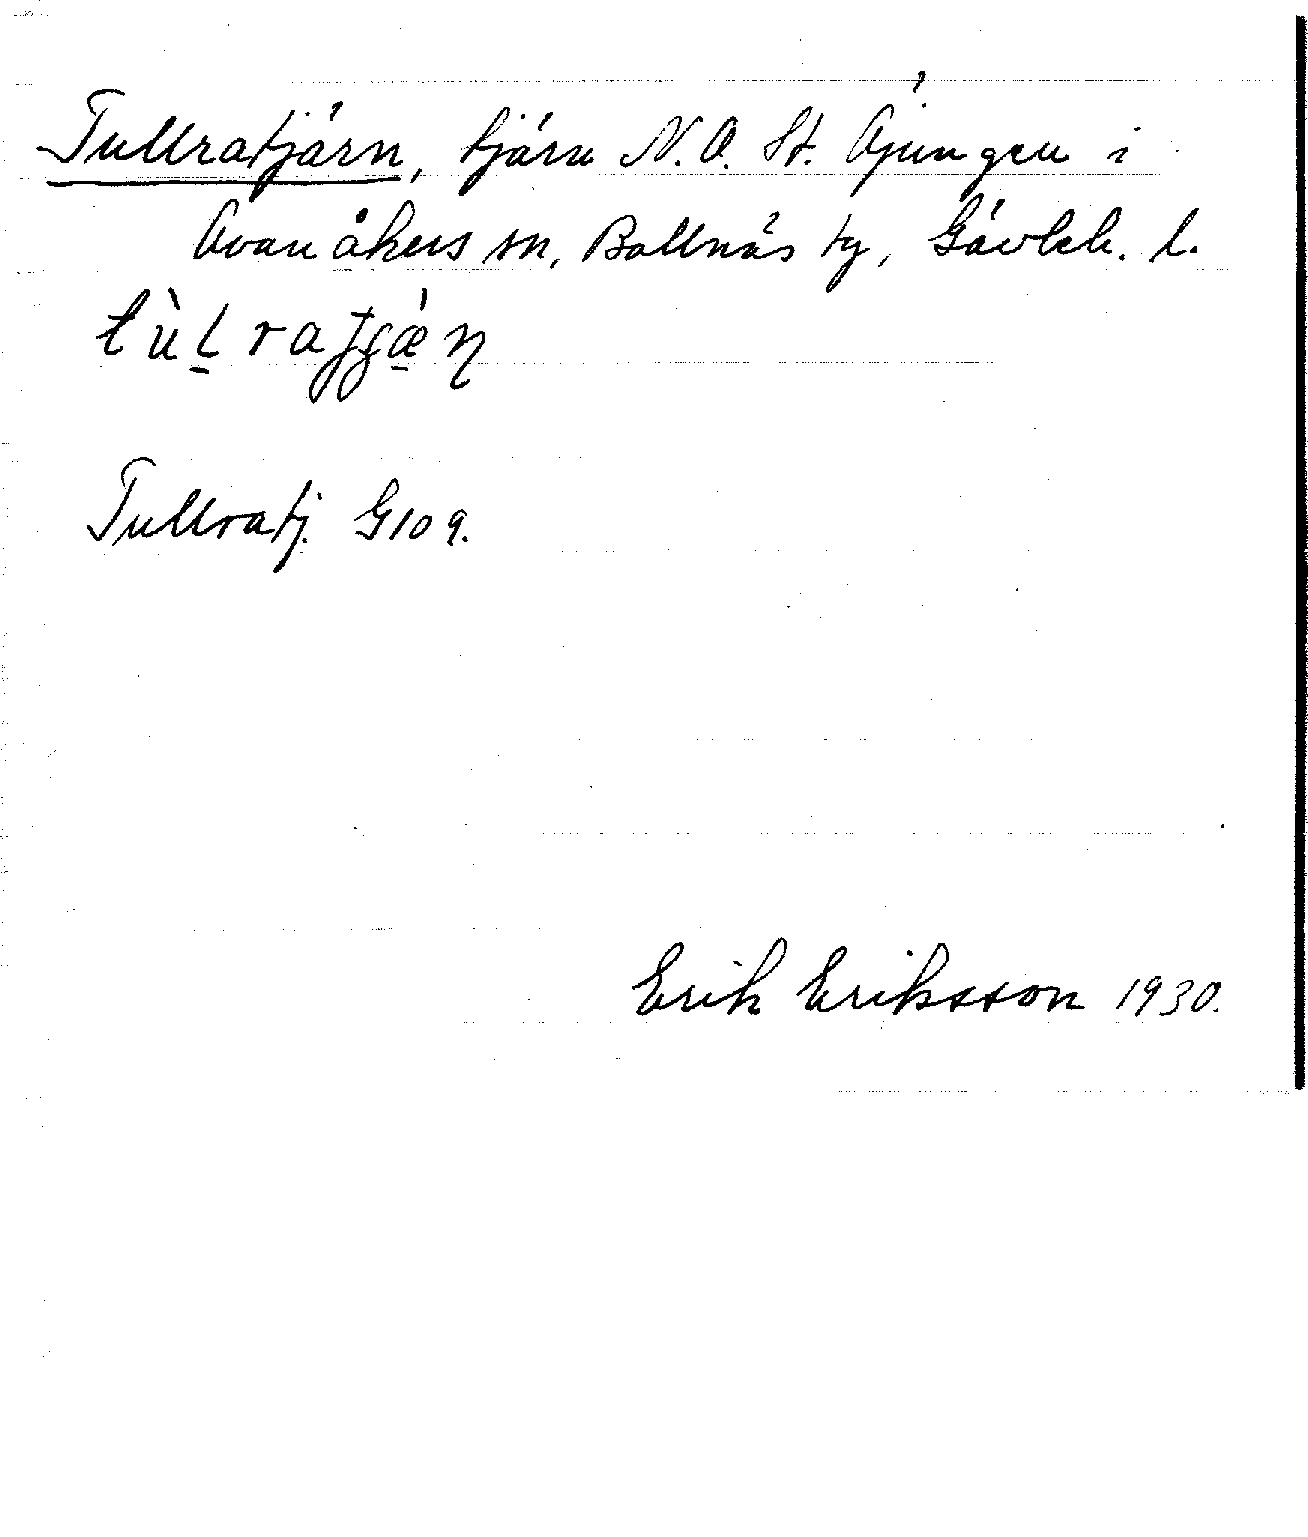 Tullratjärn, tjärn N.O. St. Öjungen i
Ovanåkers sn, Bollnäs tg, Gävleb. l.
Tullratj. G109.
Erik Eriksson 1930.